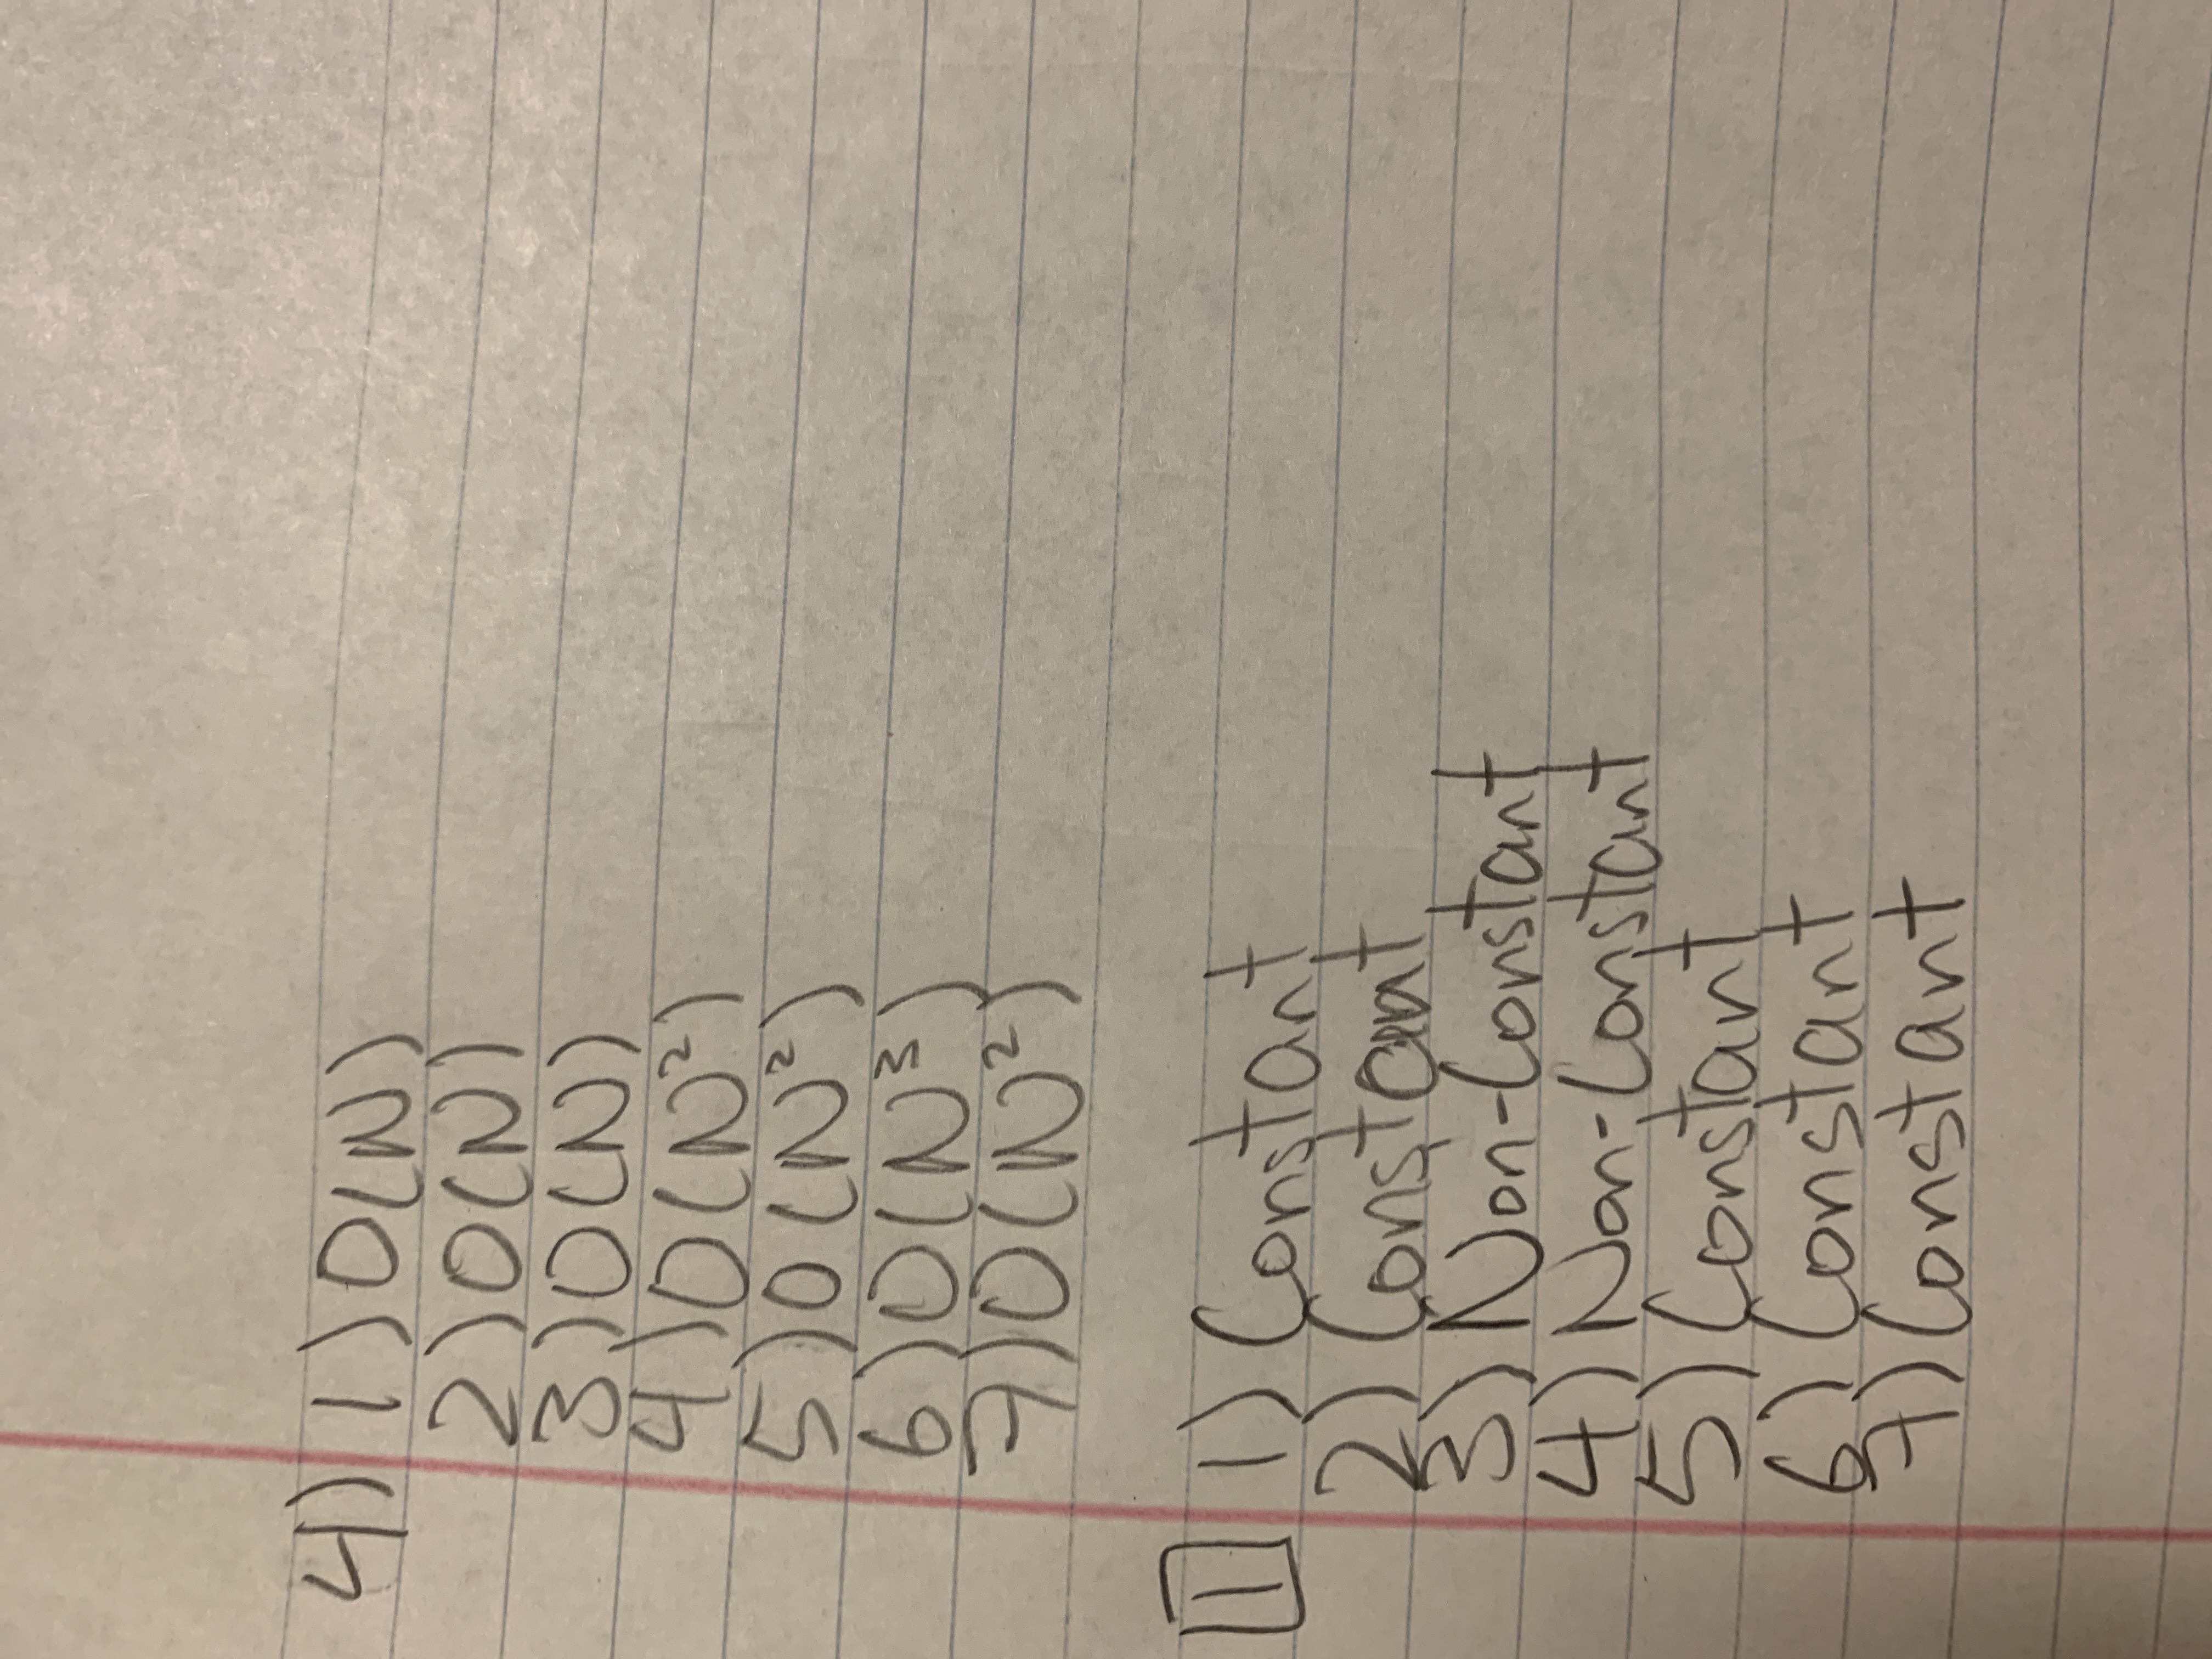 4) 1) O(N)
2) O(N)
3) O(N)
4) O(N²)
5) O(N²)
6) O(N³)
7) O(N²)
1 1) Constant
2) Constant
3) Non-Constant
4) Non-Constant
5) Constant
6) Constant
7) Constant